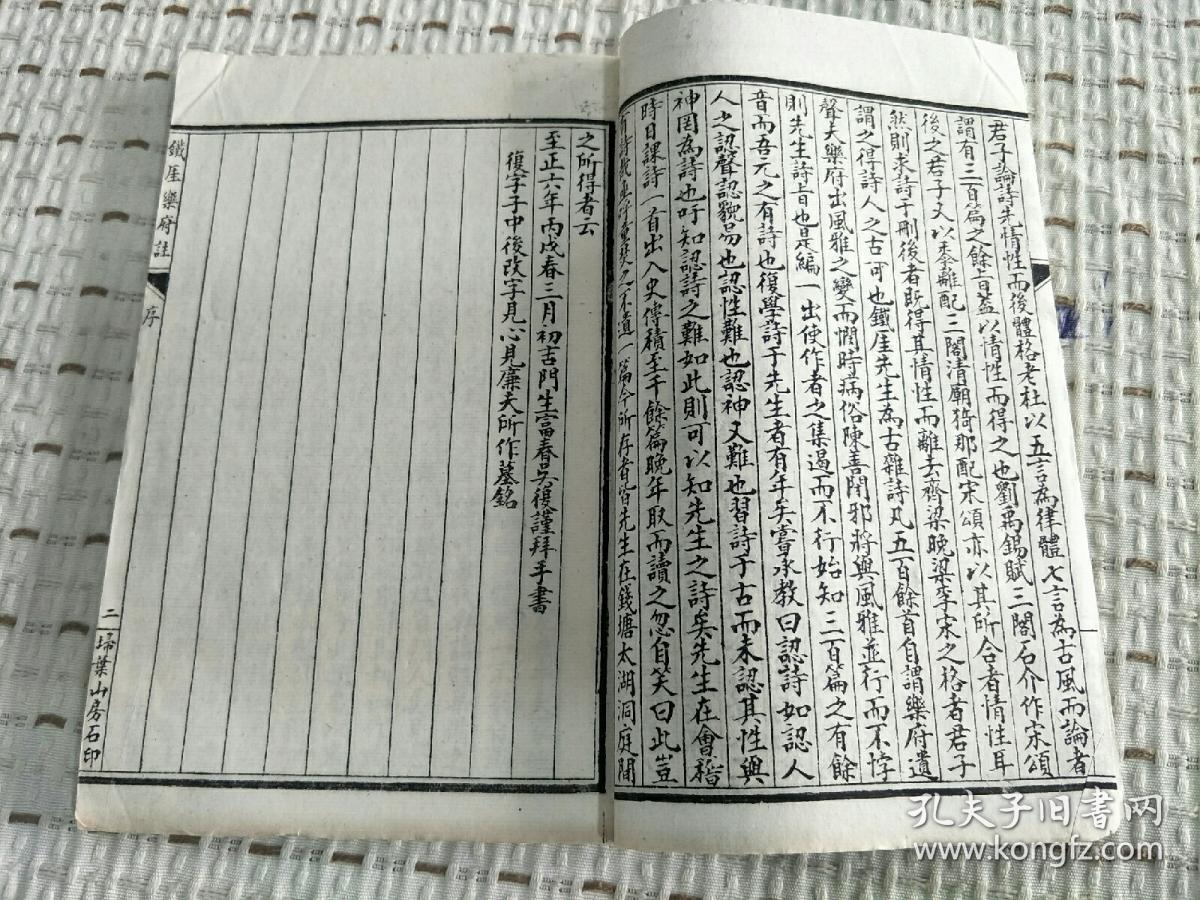 君子論詩先情性而後體格老杜以五言為律體七言為古風而論者
謂有三百篇之餘旨蓋以情性而得之也劉禹錫賦三閣石介作宋頌
後之君子又以黍離配三閣清廟猗那配宋頌亦以其所合者情性耳
然則求詩于刪後者既得其情性而離去齊梁晚梁李宋之格者君子
謂之得詩人之古可也鐵厓先生為古雜詩凡五百餘首自謂樂府遺
聲夫樂府出風雅之變而憫時病俗陳善閉邪將與風雅並行而不悖
則先生詩旨也是編一出使作者之集遏而不行始知三百篇之有餘
音而吾元之有詩也復學詩于先生者有年矣嘗承教曰認詩如認人
人之認聲認貌易也認性難也認神又難也習詩于古而未認其性與
神罔為詩也吁知認詩之難如此則可以知先生之詩矣先生在會稽
時日課詩一首出入史傳積至千餘篇晚年取而讀之忽自笑曰此豈
有詩哉亟呼童焚之不遺一篇今所存者皆先生在錢塘太湖洞庭間
之所得者云
至正六年丙戌春三月初吉門生富春吳復謹拜手書
復字子中後改字見心見廉夫所作墓銘
鐵厓樂府註
序
二
埽葉山房石印
孔夫子旧書网
www.kongfz.com